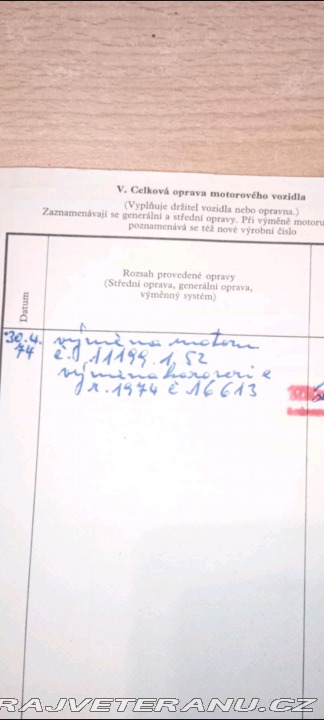 V. Celková oprava motorového vozidla
(Vyplňuje držitel vozidla nebo opravna.)
Zaznamenávají se generální a střední opravy. Při výměně motoru
poznamenává se též nové výrobní číslo
Datum
Rozsah provedené opravy
(Střední oprava, generální oprava,
výměnný systém)
30.4.
74
výměna motoru
č. 11199.1,52
výměna karoserie
r. 1974 č 16613
RAJVETERANU.CZ